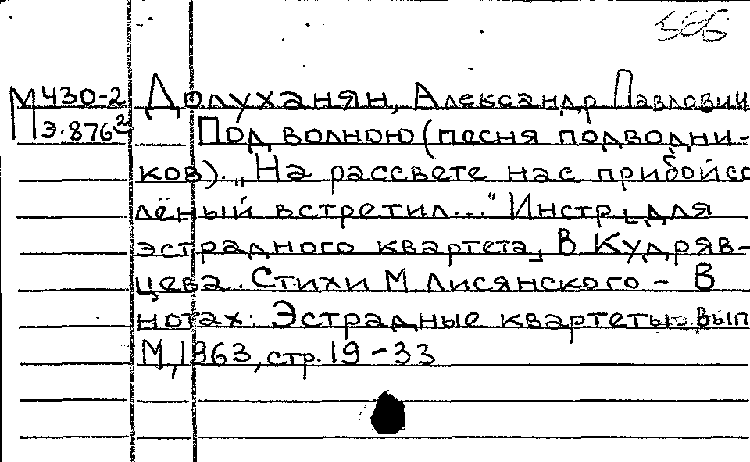 566
М430-2 Долуханян, Александр Павлович
П э.876² Под волною (песня подводни-
ков). „На рассвете нас прибой со
лёный встретил..." Инстр. для
эстрадного квартета В Кудряв-
цева. Стихи М Лисянского - В
нотах: Эстрадные квартеты. Вып
М, 1963, стр. 19-33